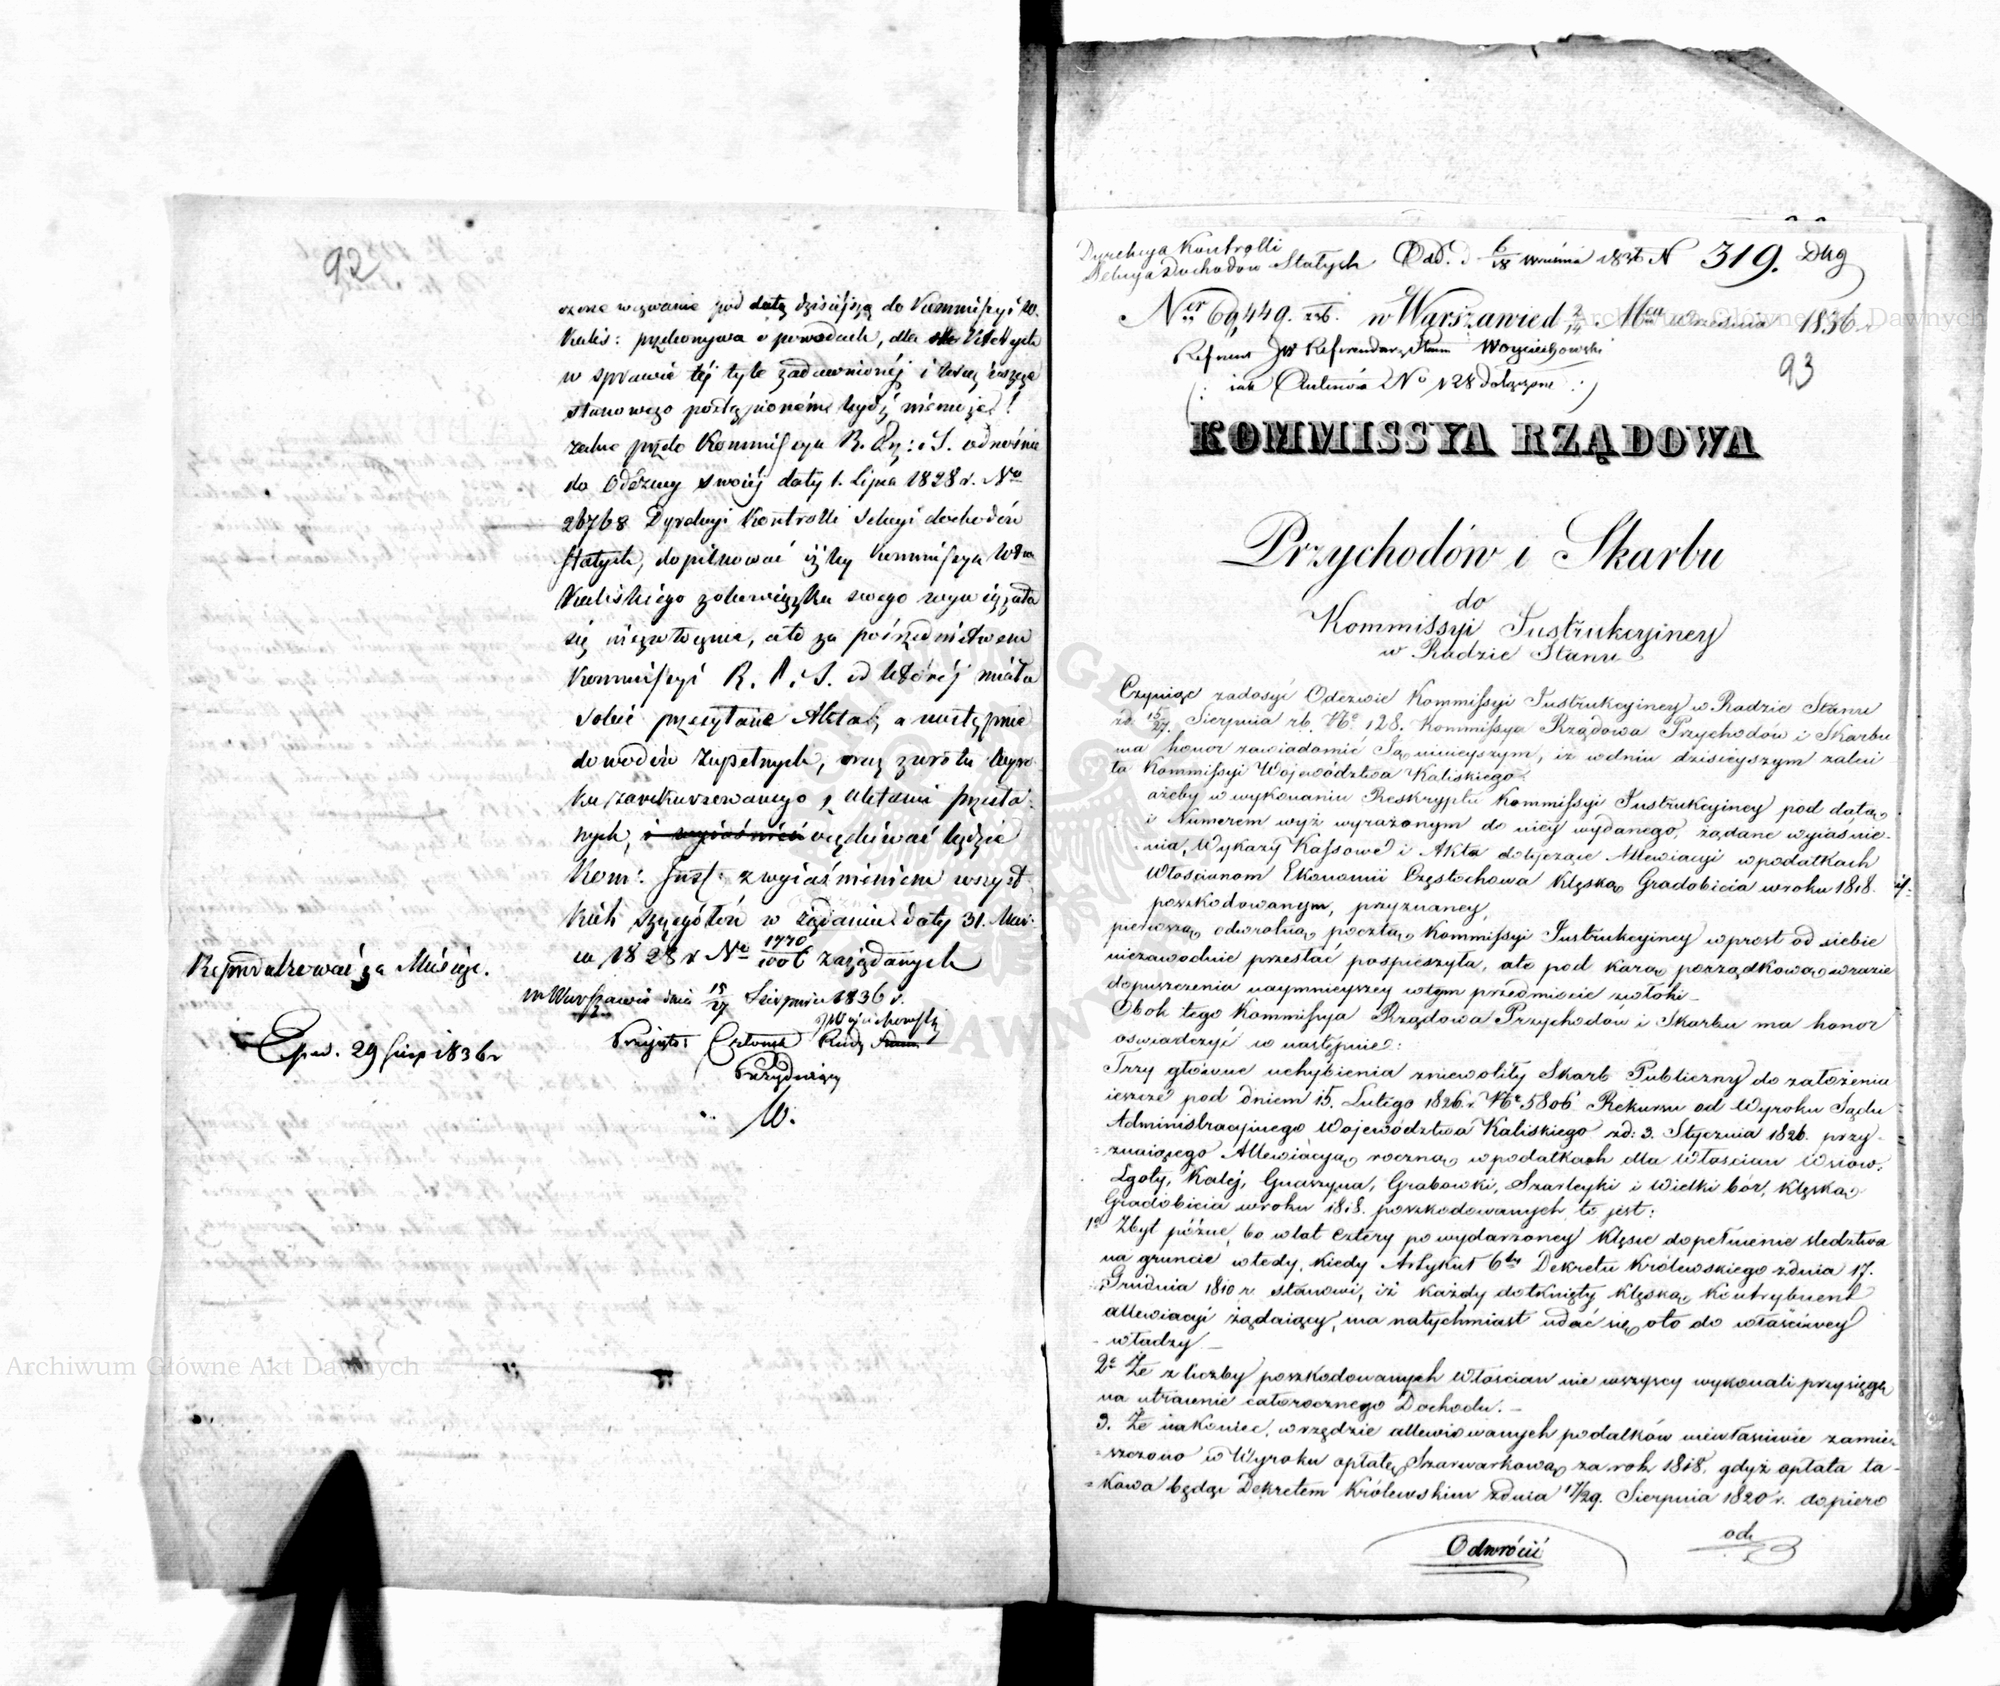 92
czone wezwanie pod datą dzisiejszą do Kommissyi W.
Kalis: przekonywa o powodach, dla których
w sprawie tej tyle zadawnionéj i
stanowczo postąpioném bydź niemoże!
zechce przeto Kommissya R. Prz: i S. odnośnie
do Odezwy swoiéj daty 1. Lipca 1828 r. No
26768 Dyrekcyi Kontrolli Sekcyi dochodów
stałych, dopilnować iżby Kommissya Wdwa
Kaliskiego z obowiązku swego wywiązała
się niezwłocznie, ale za pośrednictwem
Kommissyi R. P. i S. od któréj miała
sobie przesyłane Akta, a następnie
dowodów zupełnych, oraz zwrotu Wyro-
ku zarekursowanego z Aktami przesła-
nych, i wyiaśnień oczekiwać będzie
Kom: Inst: z wyiaśnieniem wszyst-
kich szczegółów w żądaniu daty 31. Mar-
ca 1828 r No 1770/1006 zażądanych
w Warszawie dnia 15/27 Sierpnia 1836 r.
Reprodukować za Miesiąc.
Wojciechowski
Przyjęto: Członek Rady Stanu
Prezyduiący
W.
Exped. 29 Sierp 1836 r
Dyrekcya Kontrolli
Sekcya Dochodów Stałych Odd. d 6/18 Września 1836 N 319. Dkg
Ner 69,449. w Warszawie d 2/14 Mca Września 1836 r
Referent JW Referendarz Stanu Woyciechowski
93
(: iak Outinów No 128 dołączone :)
KOMMISSYA RZĄDOWA
Przychodów i Skarbu
do
Kommissyi Instrukcyiney
w Radzie Stanu
Czyniąc zadosyć Odezwie Kommissyi Instrukcyiney w Radzie Stanu
zd. 15/27. Sierpnia rb. No 128. Kommissya Rządowa Przychodów i Skarbu
ma honor zawiadomić Ją ninieyszym, iż w dniu dzisieyszym zaleci-
ła Kommissyi Województwa Kaliskiego:
ażeby w wykonaniu Reskryptu Kommissyi Instrukcyiney pod datą
i Numerem wyż wyrażonym do niey wydanego, żądane wyiaśnie-
nia, Wykazy Kassowe i Akta dotyczące Allewiacyi w podatkach
Włościanom Ekonomii Częstochowa klęską Gradobicia w roku 1818.
poszkodowanym, przyznaney,
pierwszą odwrotną pocztą Kommissyi Instrukcyiney wprost od siebie
niezawodnie przesłać pospieszyła, ato pod karą porządkową w razie
dopuszczenia naymnieyszey w tym przedmiocie zwłoki –
Obok tego Kommissya Rządowa Przychodów i Skarbu ma honor
oświadczyć w następnie:
Trzy główne uchybienia zniewoliły Skarb Publiczny do założenia
ieszcze pod dniem 15. Lutego 1826 r. No 5806 Rekursu od Wyroku Sądu
Administracyjnego Województwa Kaliskiego zd: 3. Stycznia 1826. przy-
znaiącego Allewiacyą roczną w podatkach dla Włościan Wsiów.
Lgoty, Kalej, Gnaszyna, Grabowki, Szarleyki i Wielki bór, klęską
Gradobicia w roku 1818. poszkodowanych, to jest:
1o Zbyt późne, bo w lat cztery po wydarzoney klęsce dopełnienie śledztwa
na gruncie wtedy, kiedy Artykuł 6ty Dekretu Królewskiego z dnia 17.
Grudnia 1810 r. stanowi, iż każdy dotknięty klęską Kontrybuent
allewiacyi żądaiący, ma natychmiast udać się oto do właściwey
władzy –
2e Że z liczby poszkodowanych Włościan nie wszyscy wykonali przysięgę
na utracenie całorocznego Dochodu. –
3. Że nakoniec, w rzędzie allewiowanych podatków niewłaściwie zamie-
szczono w Wyroku opłatę Szarwarkową za rok 1818, gdyż opłata ta-
kowa będąc Dekretem Królewskim z dnia 17/29. Sierpnia 1820 r. dopiero
Odwrócić
od
Archiwum Główne Akt Dawnych
Archiwum Główne Akt Dawnych